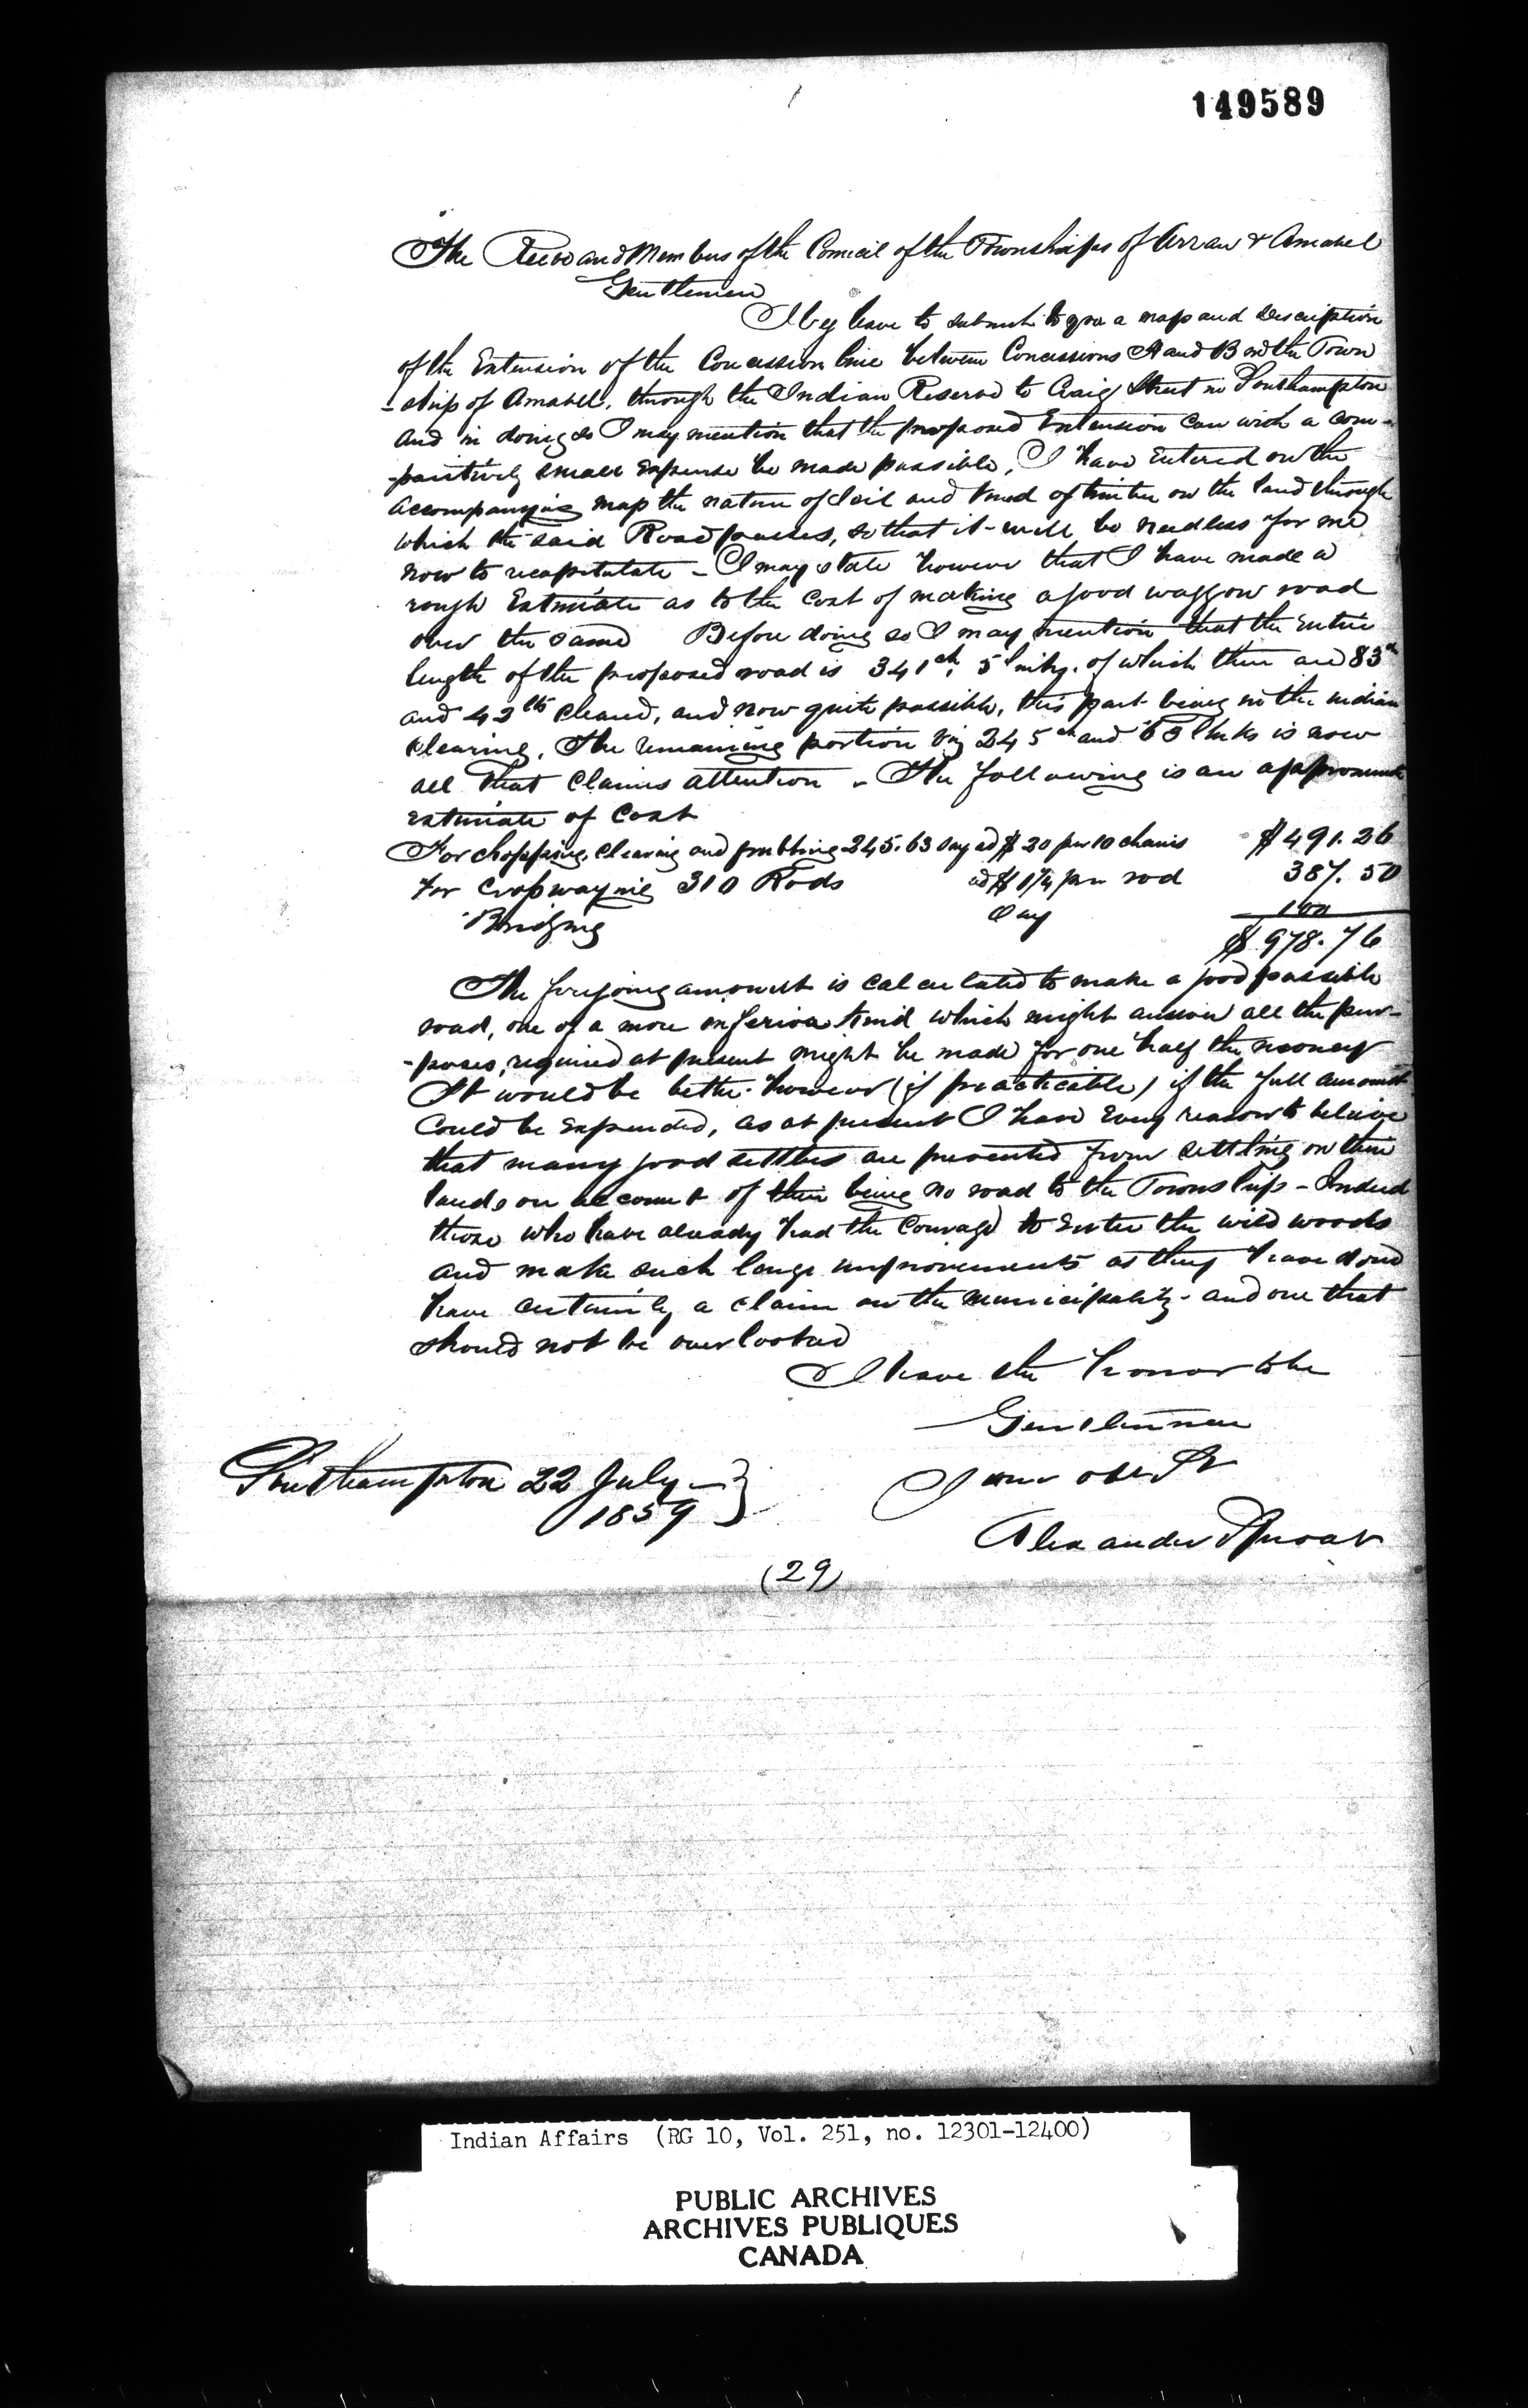 149589
The Reeve and Members of the Council of the Townships of Arran & Amabel
Gentlemen
I beg leave to submit to you a map and description
of the Extension of the Concession line between Concessions A and B in the Town
-ship of Amabel, through the Indian Reserve to Craig Street in Southampton
and in doing so I may mention that the proposed Extension can with a com-
-paritively small expense be made passible, I have Entered on the
accompanying map the nature of Soil and kind of timber on the land through
which the said Road passes, so that it will be needless for me
now to recapitulate - I may state however that I have made a
rough Estimate as to the cost of making a good waggon road
over the same Before doing so I may mention that the Entire
length of the proposed road is 341 ch, 5 links. of which there are 83 ch
and 42 lks cleared, and now quite passible, this part being in the indian
clearing, The remaining portion viz 245 ch and 63 links is now
all that claims attention - The following is an approximate
estimate of Cost
For chopping, clearing and grubbing 245.63 say at $ 20 per 10 chains $ 491.26
For Crosswaying 310 Rods at $ 1¼ per rod 387.50
Bridging Say 100
$ 978.76
The foregoing amount is calculated to make a good passible
road, one of a more inferior kind which might answer all the pur-
-poses, required at present might be made for one half the money
It would be better however (if practicable) if the full amount
could be expended, as at present I have every reason to beleive
that many good settlers are prevented from settling on their
lands on account of their being no road to the Township - Indeed
those who have already had the Courage to enter the wild woods
and make such large improvements as they have done
have certainly a claim on the municipality - and one that
should not be overlooked
I have the honor to be
Gentlemen
I am obt St
Southampton 22 July
1859
Alexander Sproat
(29)
Indian Affairs (RG 10, Vol. 251, no. 12301-12400)
PUBLIC ARCHIVES
ARCHIVES PUBLIQUES
CANADA